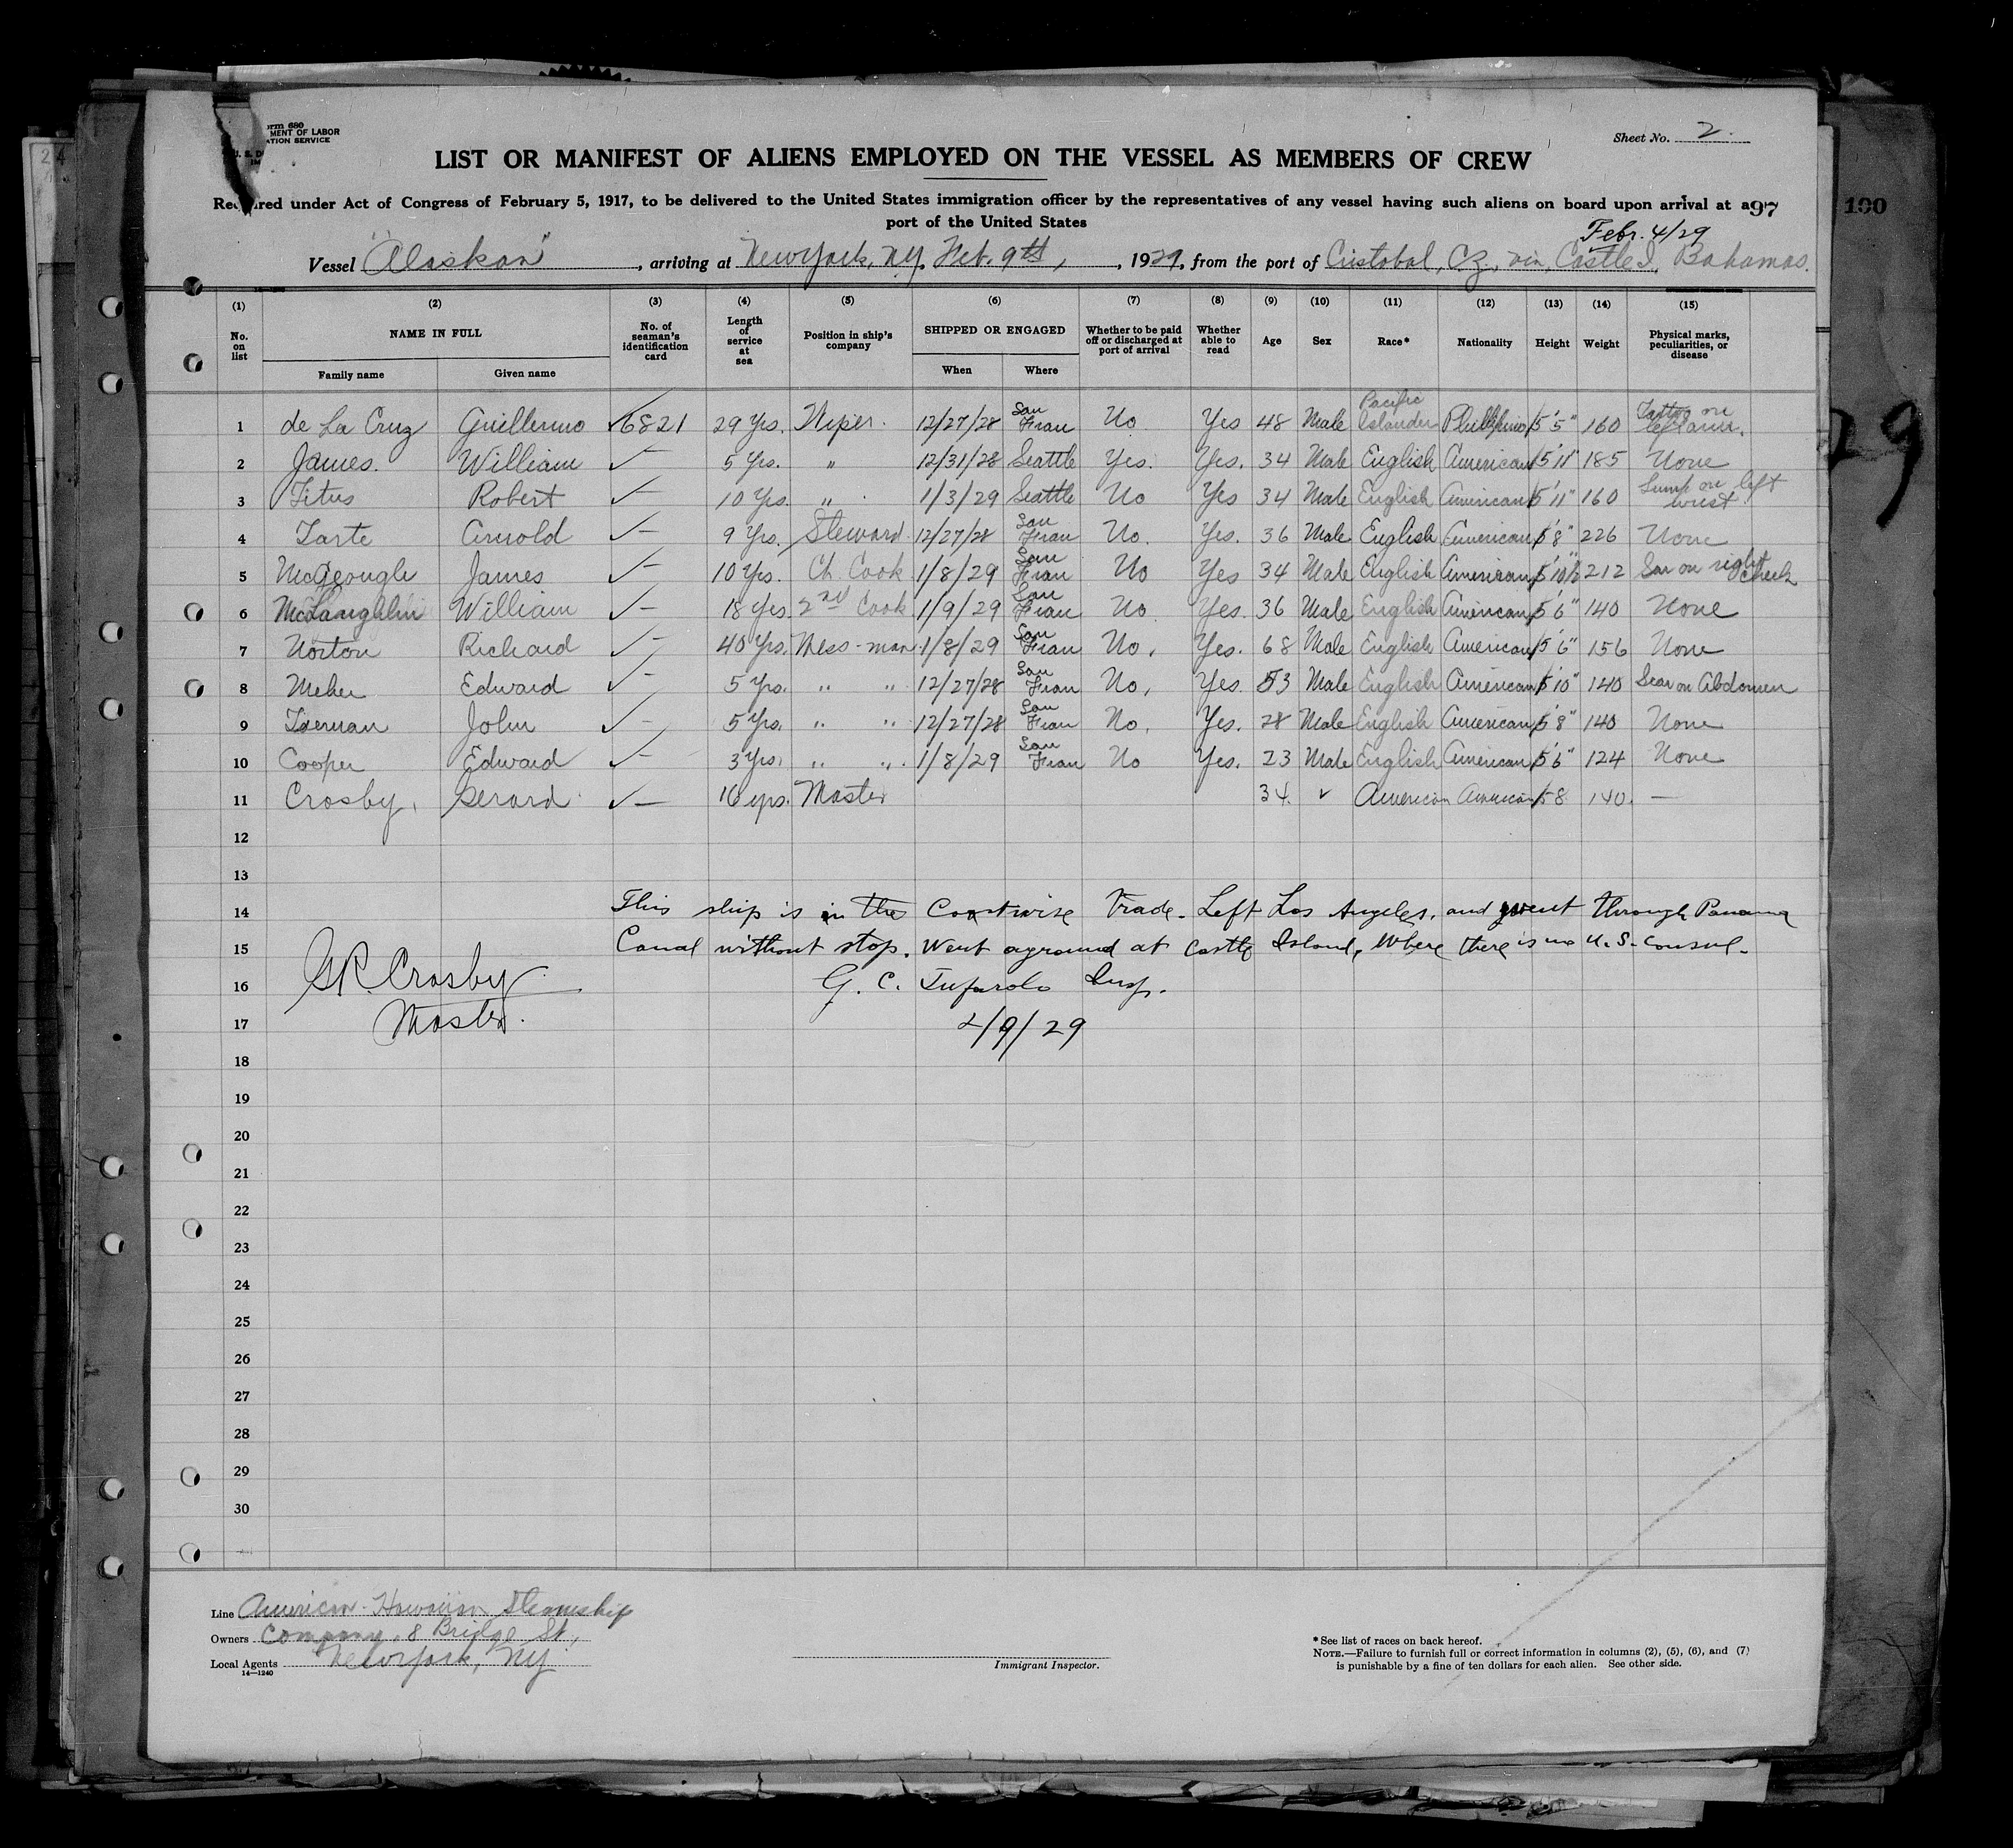 Form 680
MENT OF LABOR
ATION SERVICE
Sheet No. 2.
LIST OR MANIFEST OF ALIENS EMPLOYED ON THE VESSEL AS MEMBERS OF CREW
Required under Act of Congress of February 5, 1917, to be delivered to the United States immigration officer by the representatives of any vessel having such aliens on board upon arrival at a
port of the United States
97
100
Febr. 4/29
Vessel "Alaskan", arriving at New York, NY. Feb. 9th, 1929, from the port of Cristobal, C.Z., via, Castle I, Bahamas.
(1) (2) (3) (4) (5) (6) (7) (8) (9) (10) (11) (12) (13) (14) (15)
No. on list NAME IN FULL No. of seaman's identification card Length of service at sea Position in ship's company SHIPPED OR ENGAGED Whether to be paid off or discharged at port of arrival Whether able to read Age Sex Race* Nationality Height Weight Physical marks, peculiarities, or disease
Family name Given name When Where
1 de La Cruz Guillermo 6821 29 Yrs. Wiper. 12/27/28 San Fran No Yes 48 Male Pacific Islander Phillipino 5'5" 160 Tattoo on left arm.
2 James. William 5 Yrs. " 12/31/28 Seattle Yes. Yes. 34 Male English American 5'11" 185 None
3 Titus Robert 10 Yrs. " 1/3/29 Seattle No Yes 34 Male English American 5'11" 160 Lump on left wrist
4 Tarte Arnold 9 Yrs. Steward 12/27/28 San Fran No. Yes. 36 Male English American 5'8" 226 None
5 McGeough James 10 Yrs. Ch. Cook 1/8/29 San Fran No Yes 34 Male English American 5'10½" 212 Scar on right cheek
6 McLaughlin William 18 Yrs. 2nd Cook 1/9/29 San Fran No Yes. 36 Male English American 5'6" 140 None
7 Norton Richard 40 Yrs. Mess-man 1/8/29 San Fran No. Yes. 68 Male English American 5'6" 156 None
8 Meher Edward 5 Yrs. " " 12/27/28 San Fran No, Yes. 53 Male English American 5'10" 140 Scar on Abdomen
9 Tierman John 5 Yrs. " " 12/27/28 San Fran No. Yes. 28 Male English American 5'8" 140 None
10 Cooper Edward 3 Yrs. " " 1/8/29 San Fran No Yes. 23 Male English American 5'6" 124 None
11 Crosby, Gerard 16 yrs. Master 34. American American 5 8 140. —
12
13
14 This ship is in the Coastwise Trade. Left Los Angeles, and went through Panama
15 Canal without stop. Went aground at Castle Island, Where there is no U.S. Consul.
16 G.R. Crosby G. C. Insp.
17 Master. 2/9/29
18
19
20
21
22
23
24
25
26
27
28
29
30
29
Line American-Hawaiian Steamship
Owners Company, 8 Bridge St.,
Local Agents New York, NY
14—1240
Immigrant Inspector.
*See list of races on back hereof.
NOTE.—Failure to furnish full or correct information in columns (2), (5), (6), and (7)
is punishable by a fine of ten dollars for each alien. See other side.